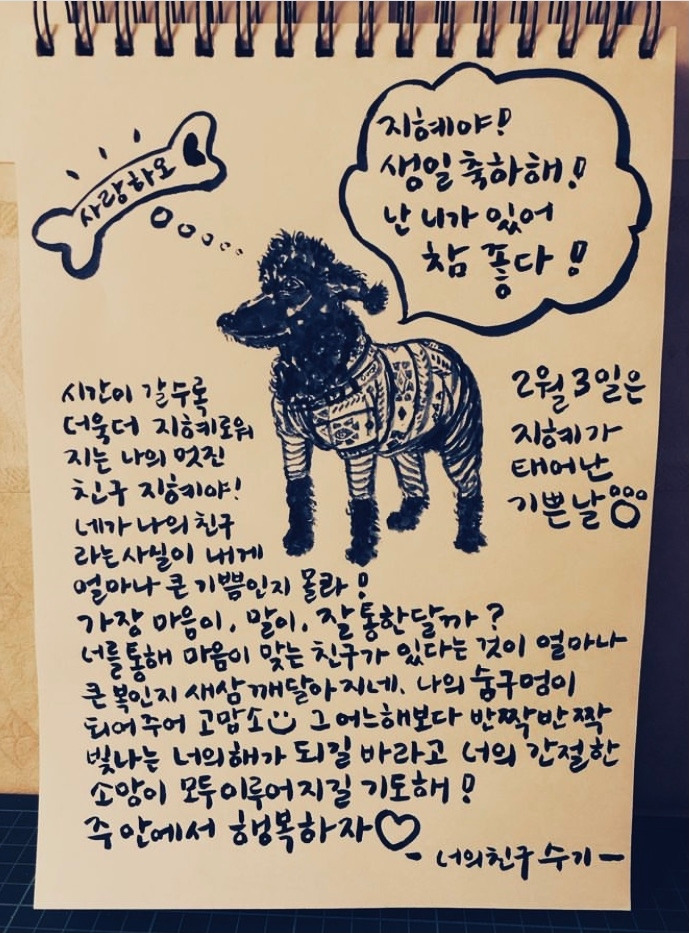 사랑하오
지혜야!
생일 축하해!
난 니가 있어
참 좋다!
시간이 갈수록
더욱더 지혜로워
지는 나의 멋진
친구 지혜야!
네가 나의 친구
라는 사실이 내게
얼마나 큰 기쁨인지 몰라!
가장 마음이, 말이, 잘 통한달까?
너를 통해 마음이 맞는 친구가 있다는 것이 얼마나
큰 복인지 새삼 깨달아지네. 나의 숨구멍이
되어주어 고맙소 그 어느해보다 반짝반짝
빛나는 너의 해가 되길 바라고 너의 간절한
소망이 모두 이루어지길 기도해!
주 안에서 행복하자♡
- 너의 친구 수기 -
2월 3일은
지혜가
태어난
기쁜날